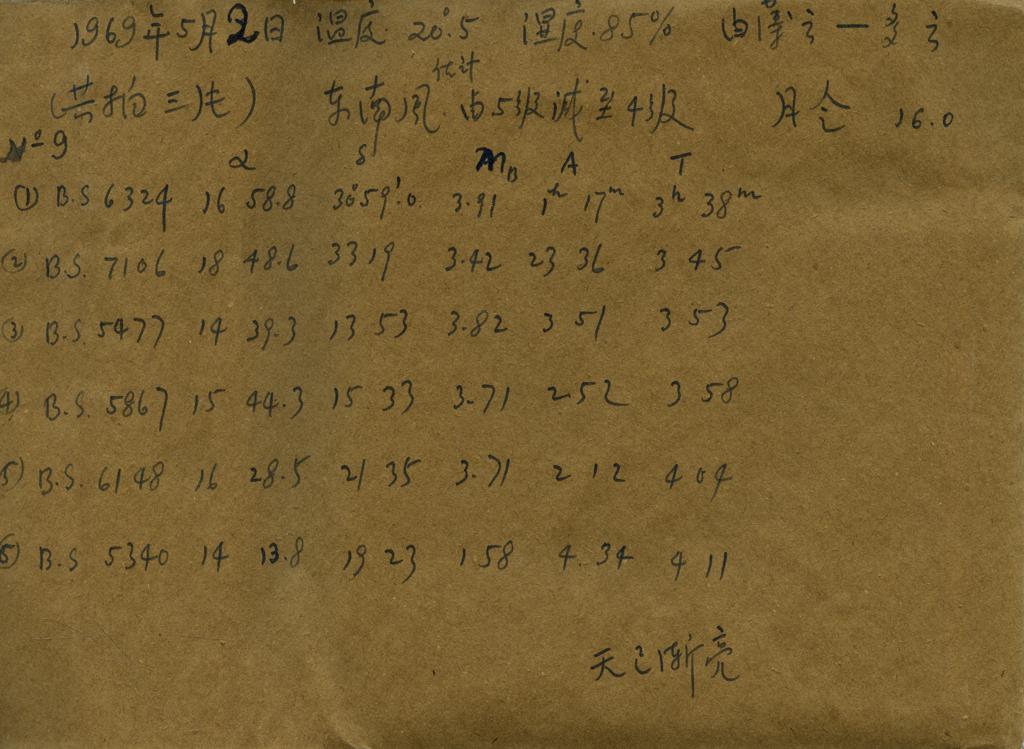 1969年5月2日 温度 20°.5 湿度.85% 由薄云—多云
(共拍三片) 东南风.估计由5级减至4级 月令 16.0
Nº9
α δ mB A T
① B.S 6324 16 58.8 30°59'.0 3.91 1ʰ 17ᵐ 3ʰ 38ᵐ
② B.S. 7106 18 48.6 33 19 3.42 23 36 3 45
③ B.S. 5477 14 39.3 13 53 3.82 3 51 3 53
④ B.S. 5867 15 44.3 15 33 3.71 2 52 3 58
⑤ B.S. 6148 16 28.5 21 35 3.71 2 12 4 04
⑥ B.S 5340 14 13.8 19 23 1.58 4.34 4 11
天已渐亮